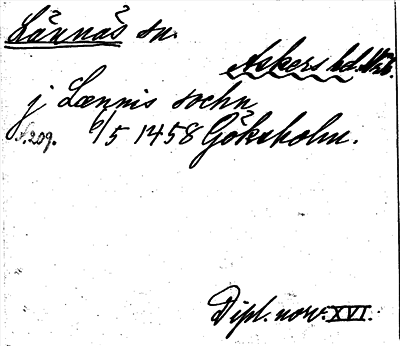 Lännäs sn.
Askers hd.
j Lænnis sochn
s. 209. 6/5 1458 Göksholm.
Dipl. norv. XVI.